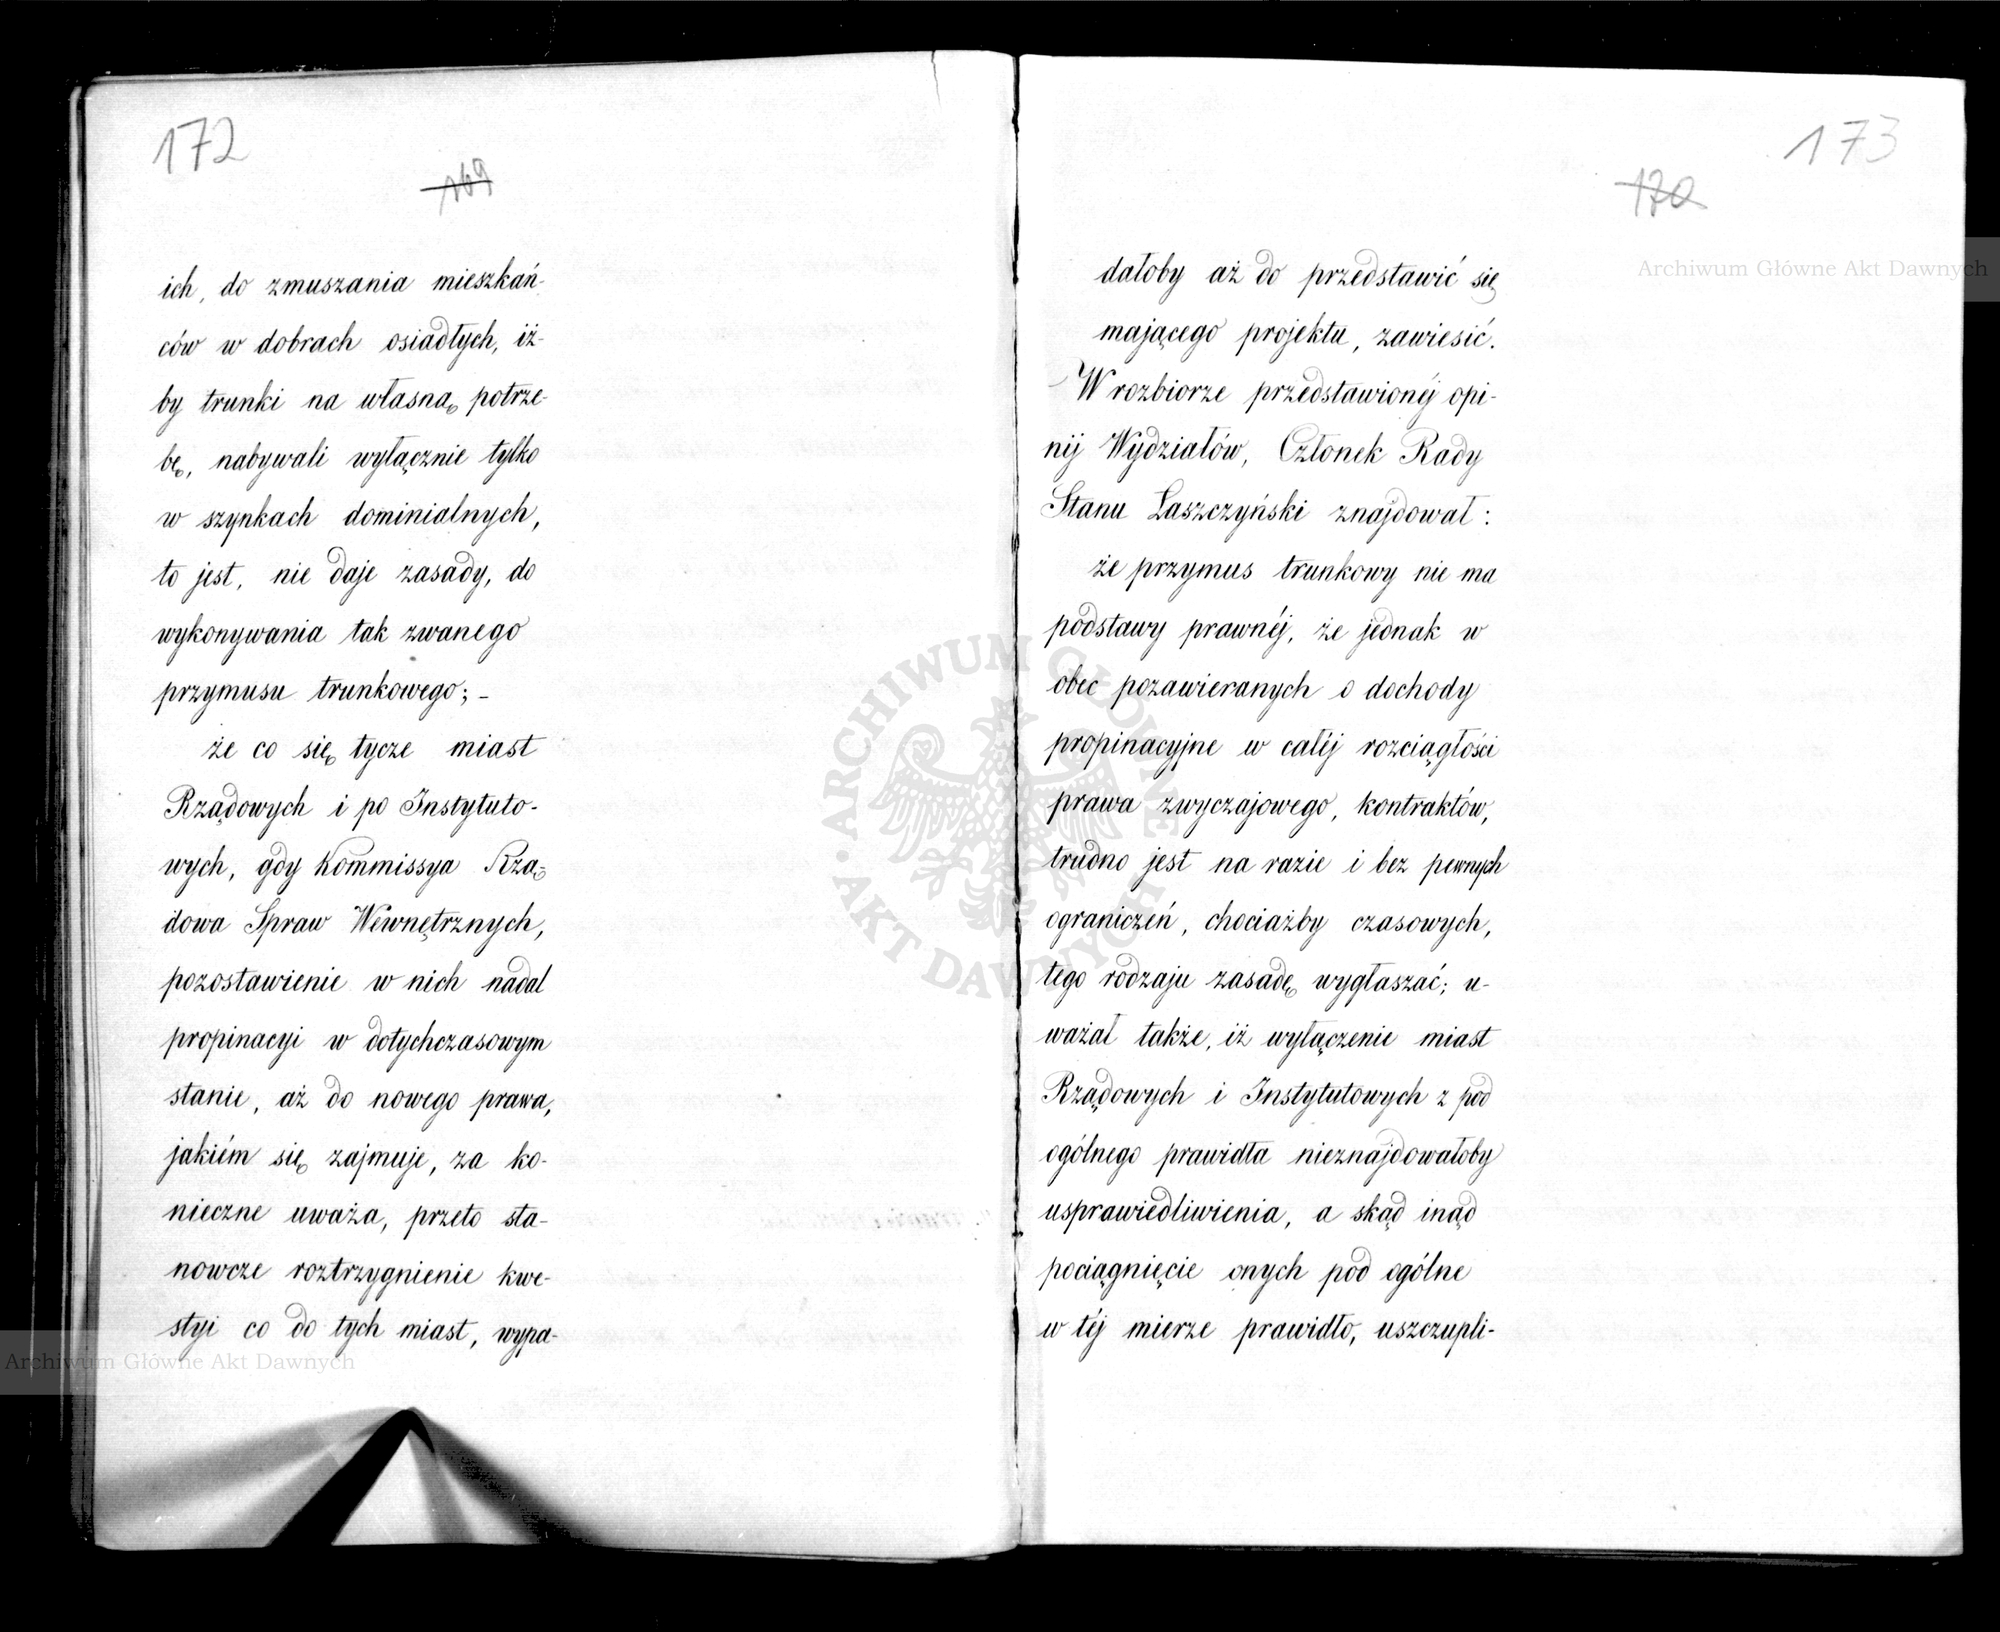 172
169
ich, do zmuszania mieszkań-
ców w dobrach osiadłych, iż-
by trunki na własną potrze-
bę, nabywali wyłącznie tylko
w szynkach dominialnych,
to jest, nie daje zasady, do
wykonywania tak zwanego
przymusu trunkowego; -
że co się tycze miast
Rządowych i po Instytuto-
wych, gdy Kommissya Rzą-
dowa Spraw Wewnętrznych,
pozostawienie w nich nadal
propinacyi w dotychczasowym
stanie, aż do nowego prawa,
jakiém się zajmuje, za ko-
nieczne uważa, przeto sta-
nowcze roztrzygnienie kwe-
styi co do tych miast, wypa-
Archiwum Główne Akt Dawnych
173
170
Archiwum Główne Akt Dawnych
dałoby aż do przedstawić się
mającego projektu, zawiesić.
W rozbiorze przedstawionéj opi-
nij Wydziałów, Członek Rady
Stanu Łaszczyński znajdował:
że przymus trunkowy nie ma
podstawy prawnéj, że jednak w
obec pozawieranych o dochody
propinacyjne w całéj rozciągłości
prawa zwyczajowego, kontraktów,
trudno jest na razie i bez pewnych
ograniczeń, chociażby czasowych,
tego rodzaju zasadę wygłaszać; u-
ważał także, iż wyłączenie miast
Rządowych i Instytutowych z pod
ogólnego prawidła nieznajdowałoby
usprawiedliwienia, a skąd inąd
pociągnięcie onych pod ogólne
w téj mierze prawidło, uszczupli-
ARCHIWUM GŁÓWNE AKT DAWNYCH